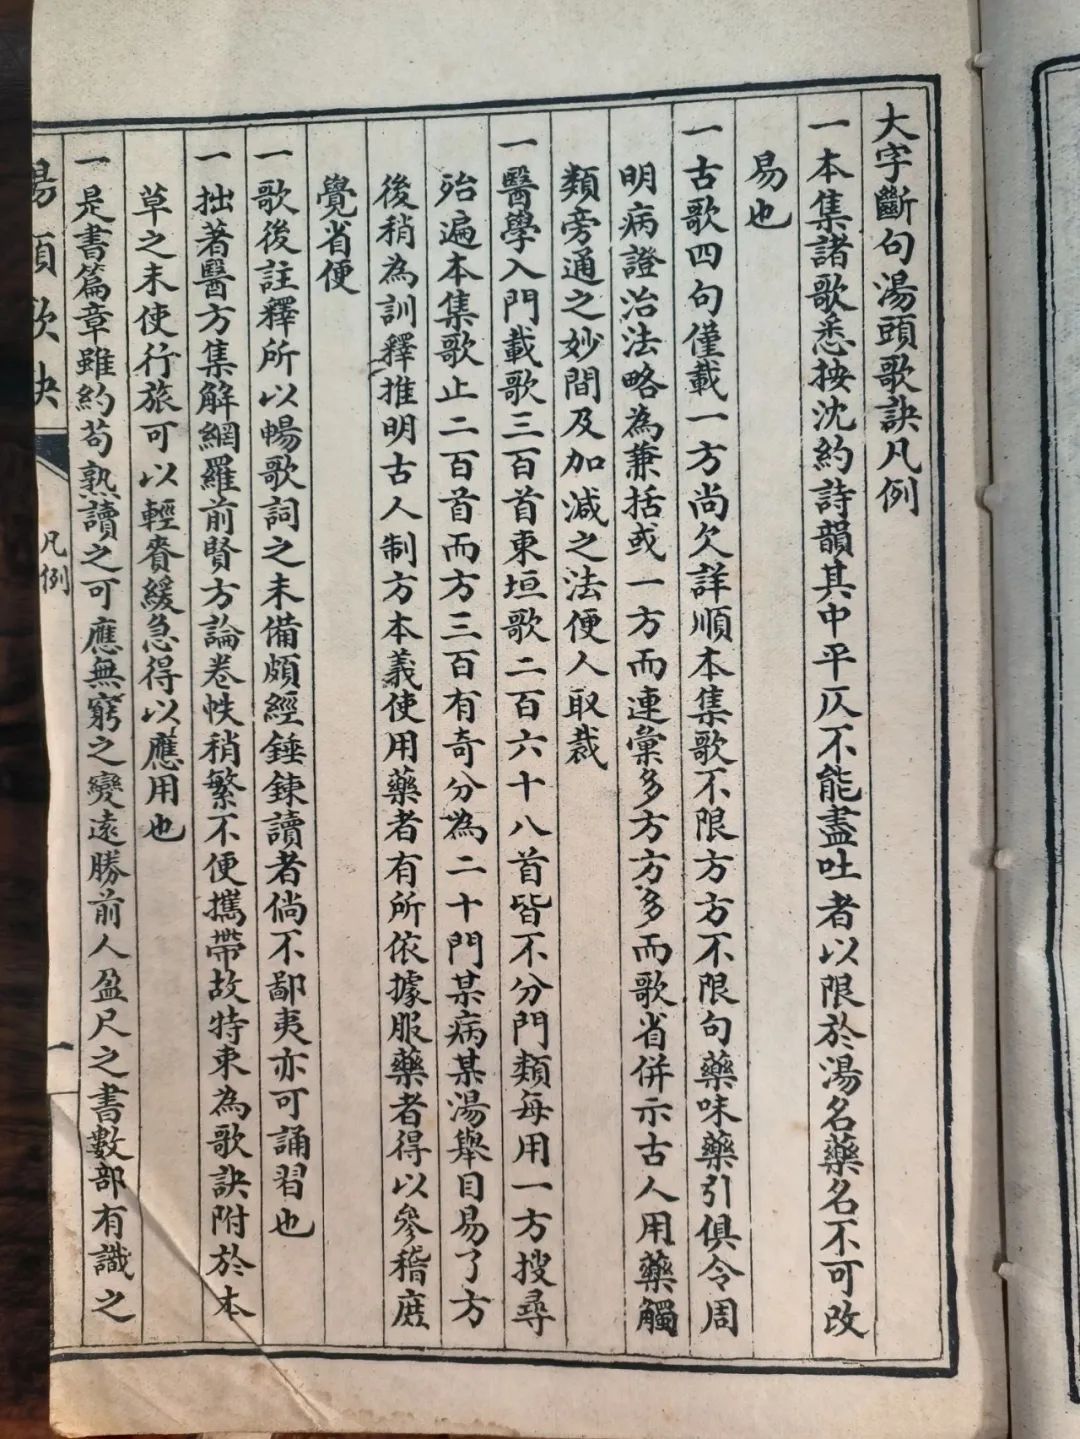 大字斷句湯頭歌訣凡例
一本集諸歌悉按沈約詩韻其中平仄不能盡叶者以限於湯名藥名不可改
易也
一古歌四句僅載一方尚欠詳順本集歌不限方方不限句藥味藥引俱令周
明病證治法略為兼括或一方而連彙多方方多而歌省併示古人用藥觸
類旁通之妙間及加減之法便人取裁
一醫學入門載歌三百首東垣歌二百六十八首皆不分門類每用一方搜尋
殆遍本集歌止二百首而方三百有奇分為二十門某病某湯舉目易了方
後稍為訓釋推明古人制方本義使用藥者有所依據服藥者得以參稽庶
覺省便
一歌後註釋所以暢歌詞之未備頗經錘鍊讀者倘不鄙夷亦可誦習也
一拙著醫方集解網羅前賢方論卷帙稍繁不便攜帶故特束為歌訣附於本
草之末使行旅可以輕賷緩急得以應用也
一是書篇章雖約苟熟讀之可應無窮之變遠勝前人盈尺之書數部有識之
湯頭歌訣
凡例
一